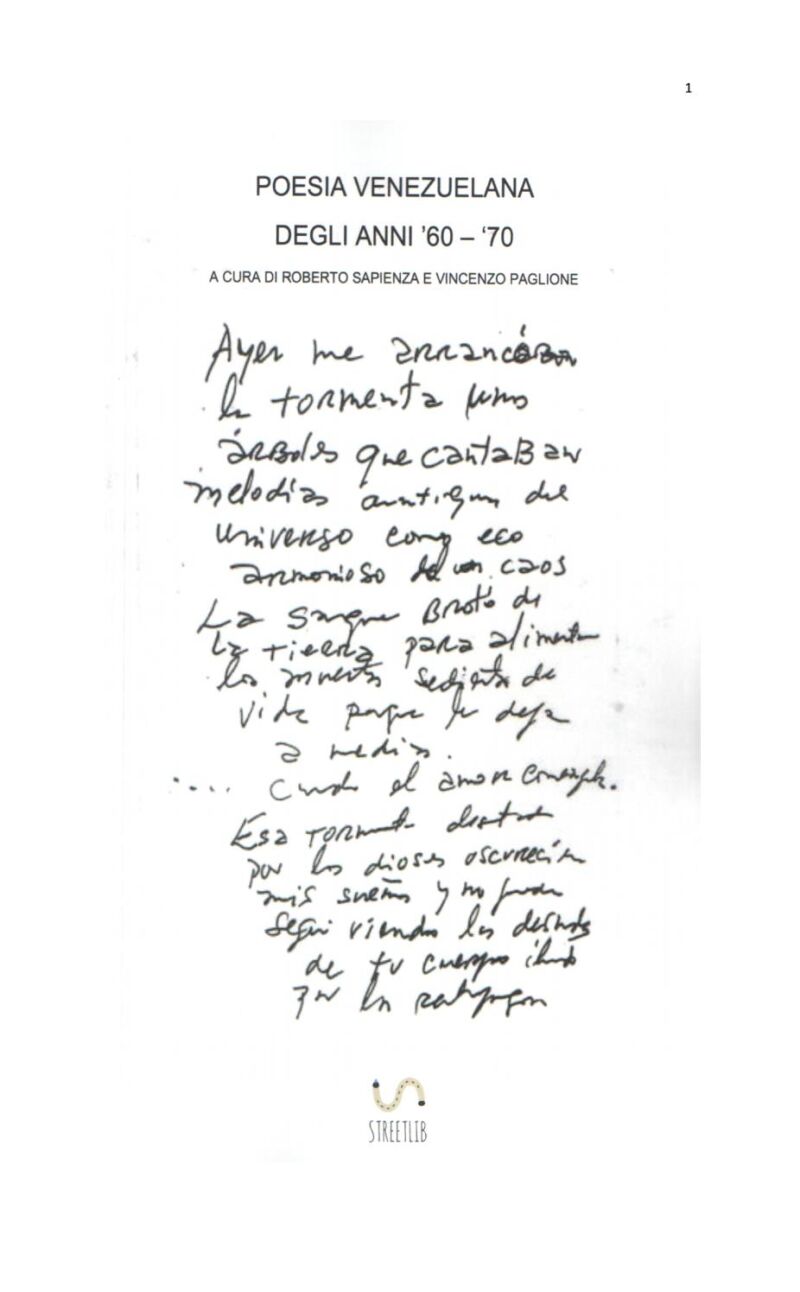 1
POESIA VENEZUELANA
DEGLI ANNI ’60 – ‘70
A CURA DI ROBERTO SAPIENZA E VINCENZO PAGLIONE
Ayer me
la tormenta unos
árboles que cantaban
melodías antiguas del
universo como eco
armonioso de un caos
La sangre brotó de
la tierra para alimentar
los muertos sedientos de
vida porque la deja
a medias.
.... Cuando el amor
Esa tormenta
por los dioses
mis sueños y no puedo
seguir viendo los
de tu cuerpo
en la
STREETLIB